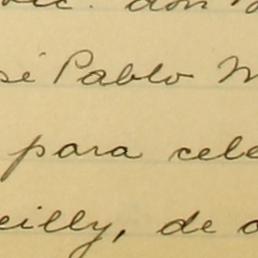 don
sé Pablo M
para cele
eilly, de